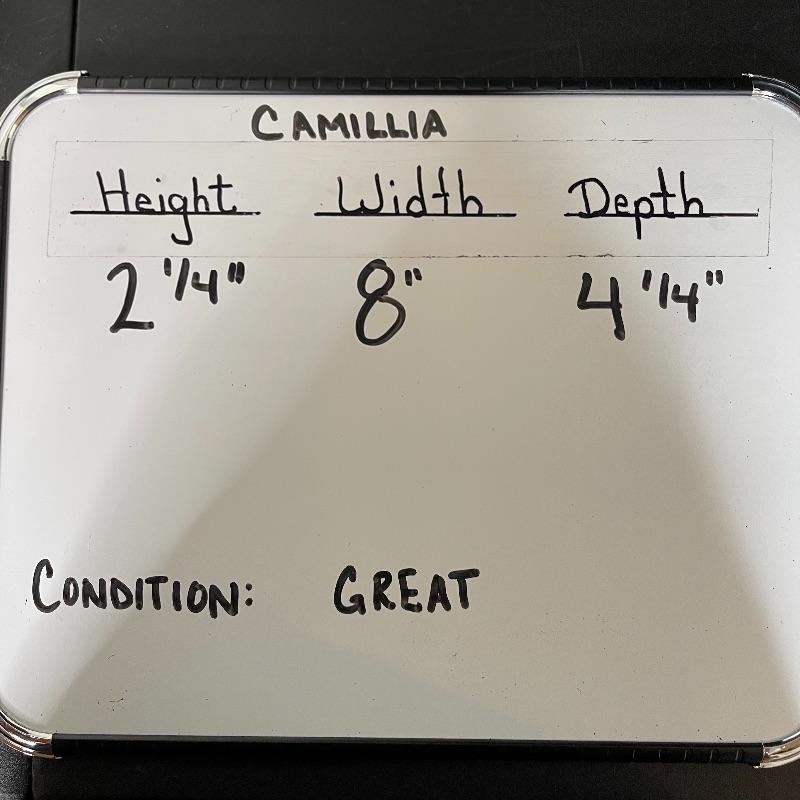 CAMILLIA
Height Width Depth
2 1/4" 8" 4 1/4"
CONDITION: GREAT